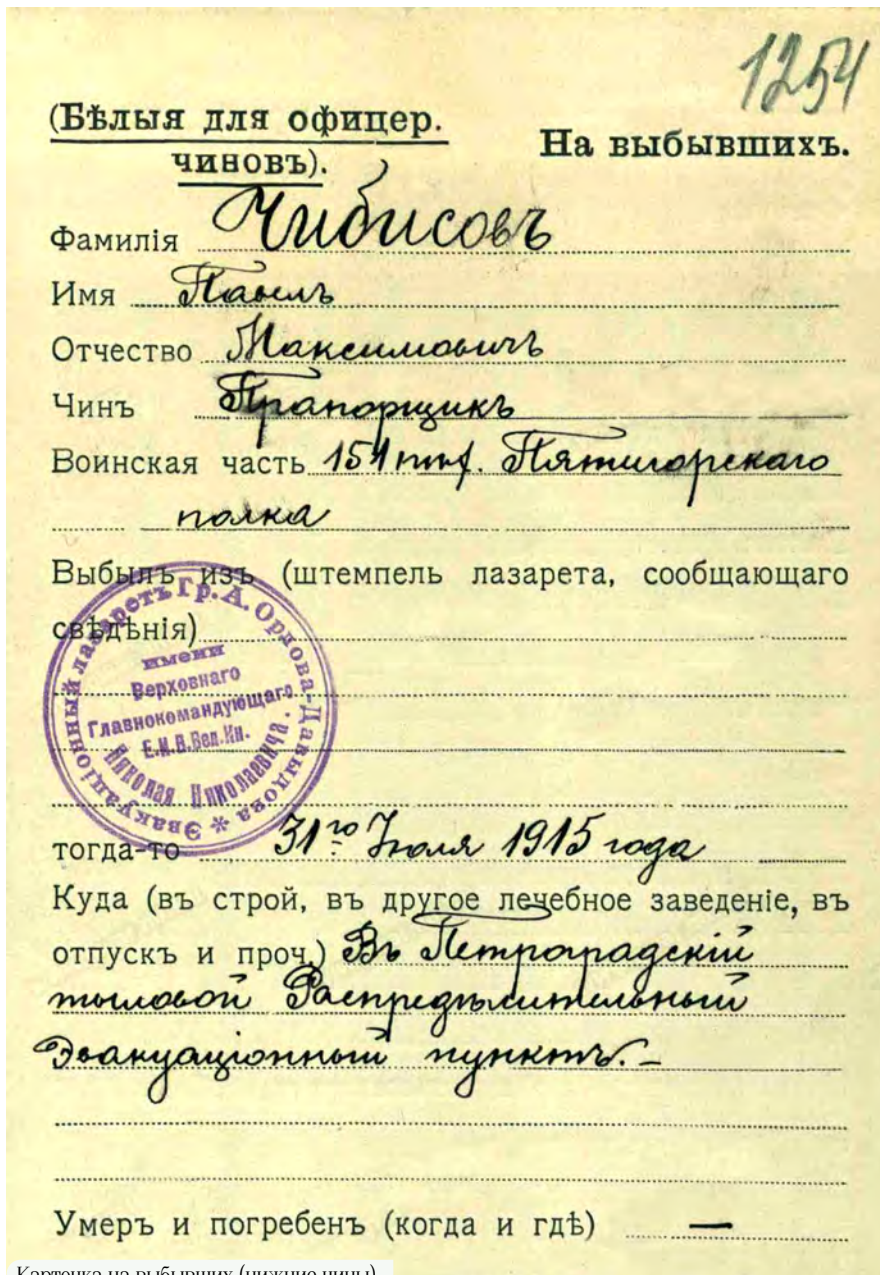 1254
(Бѣлыя для офицер.
чиновъ).
На выбывшихъ.
Фамилія Чибисовъ
Имя Павелъ
Отчество Максимовичъ
Чинъ Прапорщикъ
Воинская часть 154 пѣх. Пятигорскаго
полка
Выбылъ изъ (штемпель лазарета, сообщающаго
свѣдѣнія)
Эвакуаціонный лазаретъ Гр. А. Орлова-Давыдова *
имени
Верховнаго
Главнокомандующаго
Е.И.В.Вел.Кн.
Николая Николаевича.
тогда-то 31го Іюля 1915 года
Куда (въ строй, въ другое лечебное заведеніе, въ
отпускъ и проч.) Въ Петроградскій
тыловой Распредѣлительный
Эвакуаціонный пунктъ.-
Умеръ и погребенъ (когда и гдѣ) —
Карточка на выбывших (нижние чины)